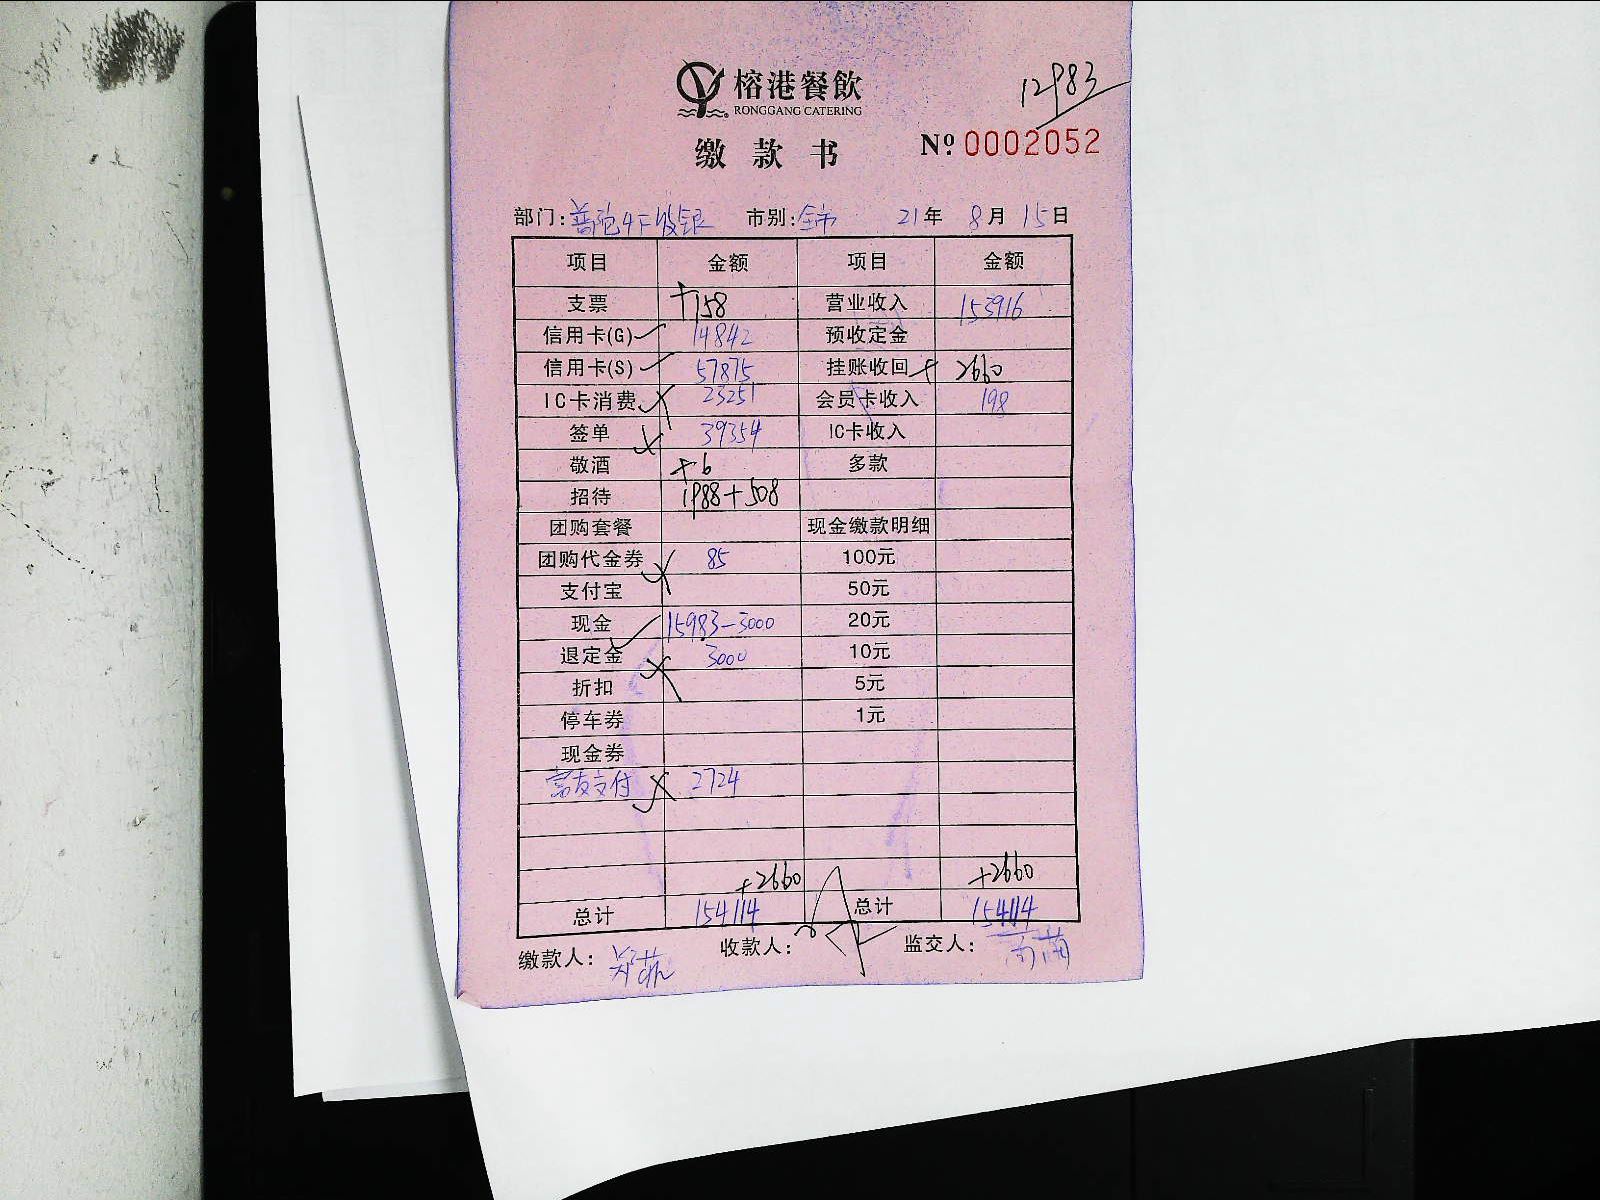 榕港餐飲
RONGGANG CATERING
12983
缴款书 Nº 0002052
部门: 普陀4F收银 市别: 全市 21年 8月 15日
项目 金额 项目 金额
支票 +158 营业收入 153916
信用卡(G) 14842 预收定金
信用卡(S) 57875 挂账收回 + 2660
IC卡消费 23251 会员卡收入 198
签单 39354 IC卡收入
敬酒 +6 多款
招待 1988+508
团购套餐 现金缴款明细
团购代金券 85 100元
支付宝 50元
现金 15983-3000 20元
退定金 3000 10元
折扣 5元
停车券 1元
现金券
富友支付 2724
+2660 +2660
总计 154114 总计 154114
缴款人: 收款人: 监交人: